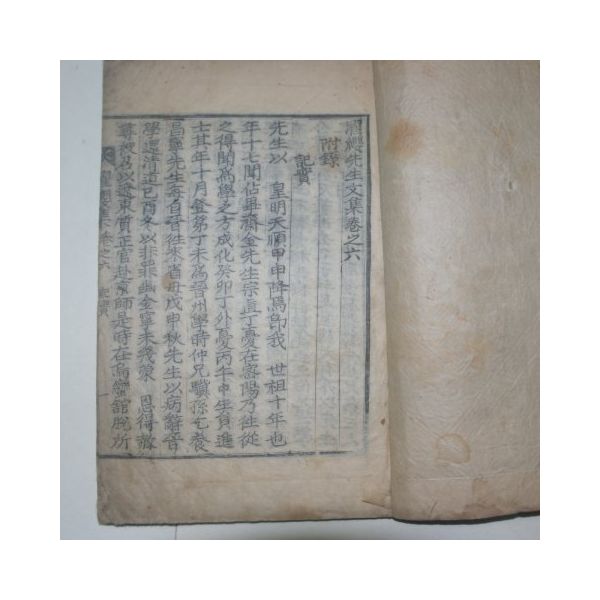 濯纓先生文集卷之六
附錄
記實
先生以 皇明天順甲申降焉卽我 世祖十年也
年十七聞佔畢齋金先生宗直丁憂在密陽乃徃從
之得聞爲學之方成化癸卯丁外憂丙午中生員進
士其年十月登第丁未爲晉州學時仲兄驥孫乞養
昌寧先生每自晉徃來省母戊申秋先生以病辭晉
學還淸道己酉冬以非罪幽金寧未幾蒙 恩得敍
以遼東質正官赴京師是時在烏蠻舘脫所
濯纓集 卷之六 記實 一